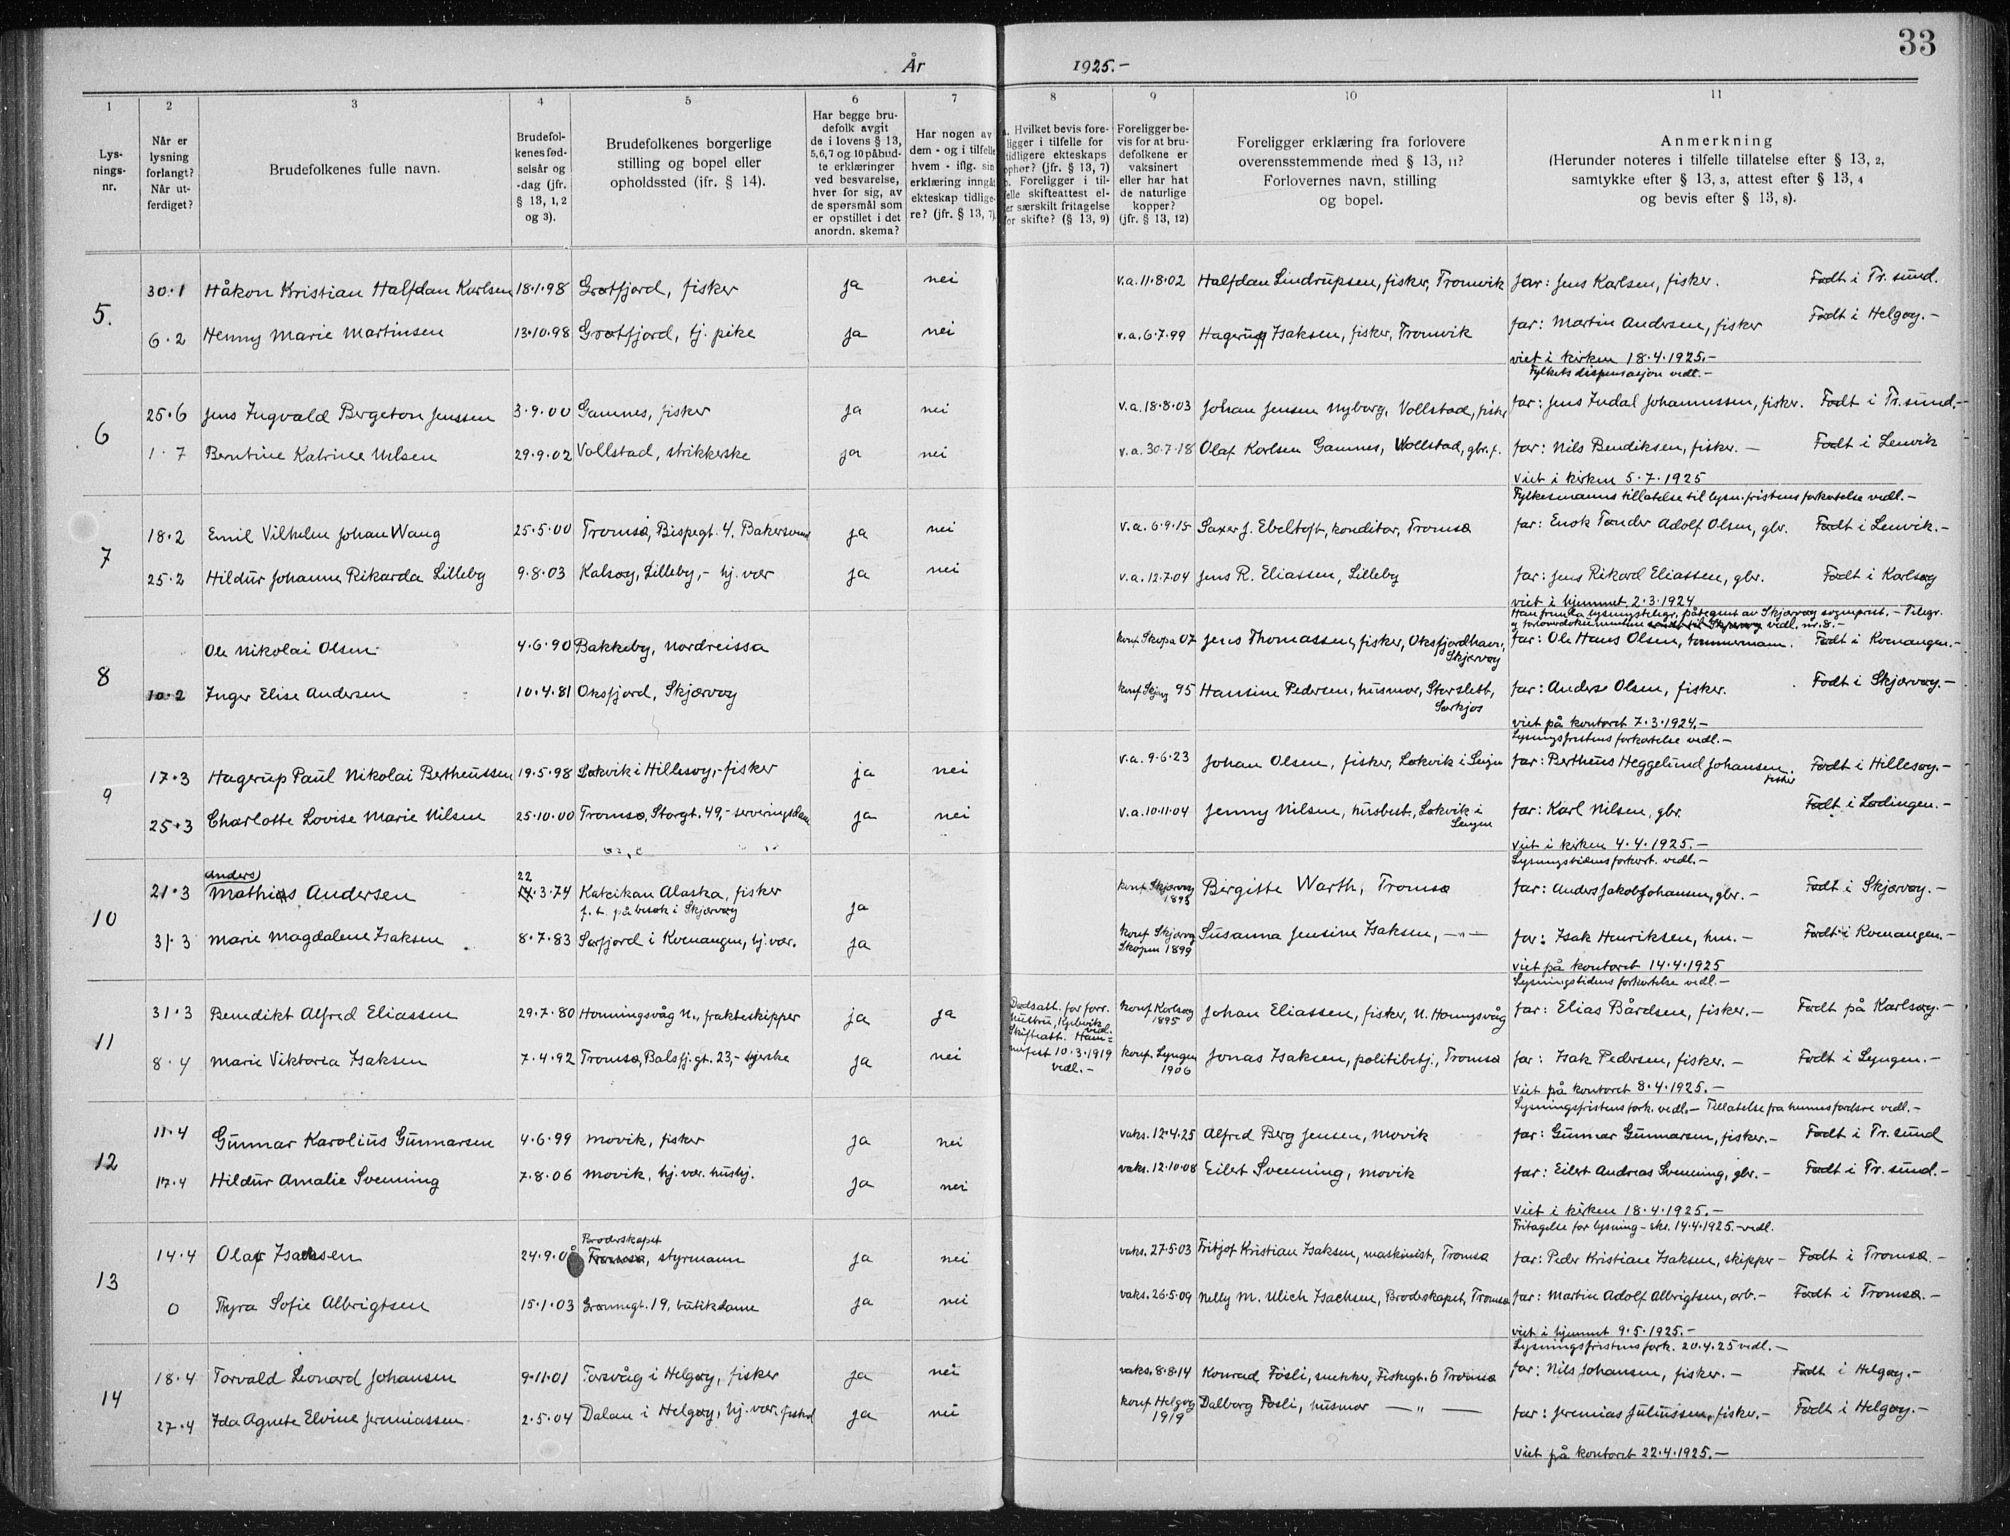 33
År 1925.-
1 2 3 4 5 6 7 8 9 10 11
Lys-
nings-
nr.
Når er
lysning
forlangt?
Når ut-
ferdiget?
Brudefolkenes fulle navn.
Brudefol-
kenes fød-
selsår og
-dag (jfr.
§ 13, 1, 2
og 3).
Brudefolkenes borgerlige
stilling og bopel eller
opholdssted (ifr. § 14).
Har begge bru-
defolk avgit
de i lovens § 13,
5,6,7 og 10 påbud-
te erklæringer
ved besvarelse,
hver for sig, av
de spørsmål som
er opstillet i det
anordn. skema?
Har nogen av
dem - og i tilfelle
hvem - iflg. sin
erklæring inngåt
ekteskap tidlige-
re? (jfr. § 13, 7).
a. Hvilket bevis fore-
ligger i tilfelle for
tidligere ekteskaps
ophør? (jfr. § 13, 7)
b. Foreligger i til-
felle skifteattest el-
ler særskilt fritagelse
for skifte? (§ 13, 9)
Foreligger be-
vis for at bru-
defolkene er
vaksinert
eller har hat
de naturlige
kopper?
(jfr. § 13, 12)
Foreligger erklæring fra forlovere
overensstemmende med § 13, 11?
Forlovernes navn, stilling
og bopel.
Anmerkning
(Herunder noteres i tilfelle tillatelse efter § 13, 2,
samtykke efter § 13, 3, attest efter § 13, 4
og bevis efter § 13, 8).
5.
30.1 Håkon Kristian Halfdan Karlsen 18.1.98 Grøtfjord, fisker ja nei v.a.11.8.02 Halfdan Lindrupsen, fisker, Tromvik far: Jens Karlsen, fisker. Født i Tr.sund.
6.2 Henny Marie Martinsen 13.10.98 Grøtfjord, hj. pike ja nei v.a.6.7.99 Hagerup Isaksen, fisker, Tromvik far: Martin Andersen, fisker Født i Helgøy.-
viet i kirken 18.4.1925.-
Fylkets dispensasjon vedl.-
6
25.6 Jens Ingvald Bergeton Jenssen 3.9.00 Gamnes, fisker ja nei v.a.18.8.03 Johan Jensen Nyborg, Vollstad, fisker far: Jens Indal Johannessen, fisker. Født i Tr.sund.-
1.7 Berntine Katrine Nilsen 29.9.02 Vollstad, strikkerske ja nei v.a.30.7.18 Olaf Karlsen Gamnes, Vollstad, gbr.f. far: Nils Bendiksen, fisker.- Født i Lenvik
Viet i kirken 5.7.1925
Fylkesmanns tillatelse til lysn.fristens forkortelse vedl.-
7
18.2 Emil Vilhelm Johan Wang 25.5.00 Tromsø, Bispegt. 4. Bakersvend ja nei v.a.6.9.15 Saxer J. Ebeltoft, konditor, Tromsø far: Enok Tønder Adolf Olsen, gbr. Født i Lenvik.-
25.2 Hildur Johanne Rikarda Lilleby 9.8.03 Kalsøy, Lilleby,- hj. vær ja nei v.a.12.7.04 Jens R. Eliassen, Lilleby far: Jens Rikard Eliassen, gbr. Født i Karlsøy
viet i hjemmet 2.3.1924
8
Ole Nikolai Olsen 4.6.90 Bakkeby, Nordreissa konf. Skopa 07 Jens Thomassen, fisker, Oksfjordhavn, Skjærvøy far: Ole Hans Olsen, tømmermann. Født i Kvenangen.-
10.2 Inger Elise Andersen 10.4.81 Oksfjord, Skjærvøy konf. Skjærv 95 Hansine Pedersen, husmor, Storslett, Sørkjos far: Anders Olsen, fisker. Født i Skjærvøy.-
viet på kontoret 7.3.1924.-
Lysningsfristens forkortelse vedl.-
9
17.3 Hagerup Paul Nikolai Bertheussen 19.5.98 Løkvik i Hillesøy,- fisker ja nei v.a.9.6.23 Johan Olsen, fisker, Løkvik i Senjen far: Bertheus Heggelund Johansen fisker Født i Hillesøy.-
25.3 Charlotte Lovise Marie Nilsen 25.10.00 Tromsø, Storgt. 49,- serveringsdame ja nei v.a.10.11.04 Jenny Nilsen, husbest., Løkvik i Senjen far: Karl Nilsen, gbr. Født i Lødingen.-
viet i kirken 4.4.1925.-
Lysningstidens forkort. vedl.-
10
21.3 Anders Mathias Andersen 22.3.74 Katcikan Alaska, fisker f.t. på besøk i Skjærvøy ja konf. Skjærvøy 1895 Birgitte Warth, Tromsø far: Anders Jakob Johansen, gbr.- Født i Skjærvøy.-
31.3 Marie Magdalene Isaksen 8.7.83 Sørfjord i Kvenangen, hj.vær. ja konf Skjærvøy Skopen 1899 Susanna Jensine Isaksen, -"- far: Isak Henriksen, hm.- Født i Kvenangen.-
viet på kontoret 14.4.1925
Lysningstidens forkortelse vedl.-
11
31.3 Benedikt Alfred Eliassen 29.7.80 Honningsvåg N., frakteskipper ja ja Dødsatt. for forr. hustru, Kjelvik vedl. Skifteatt. Ham=merfest 10.3.1919 vedl.- konf Karlsøy 1895 Johan Eliassen, fisker, N. Honnigsvåg far: Elias Bårdsen, fisker.- Født på Karlsøy.-
8.4 Marie Viktoria Isaksen 7.4.92 Tromsø, Balsfj.gt. 23,- syerske ja nei konf. Lyngen 1906 Jonas Isaksen, politibetj., Tromsø far: Isak Pedersen, fisker.- Født i Lyngen.-
Viet på kontoret 8.4.1925.-
Lysningsfristens fork. vedl.- Tillatelse fra hennes fordsre vedl.-
12
11.4 Gunnar Karolius Gunnarsen 4.6.99 Movik, fisker ja nei vaks.12.4.25 Alfred Berg Jensen, Movik far: Gunnar Gunnarsen, fisker.- Født i Tr.sund
17.4 Hildur Amalie Svenning 7.8.06 Movik, hj. vær. hushj. ja nei vaks.12.10.08 Eilert Svenning, Movik far: Eilert Andreas Svenning, gbr.- Født i Tr.sund.-
Viet i kirken 18.4.1925.-
Fritagelse for lysning - skr. 14.4.1925.-vedl.
13
14.4 Olaf Isaksen 24.9.0 Brodeskapet Tromsø, styrmann ja nei vaks.27.5.03 Fritjof Kristian Isaksen, maskinist, Tromsø far: Peder Kristian Isaksen, skipper- Født i Tromsø.-
0 Thyra Sofie Albrigtsen 15.1.03 Grønnegt. 19, butikdame ja nei vaks.26.5.09 Nelly M. Ulich Isachsen, Brodeskapet, Tromsø far: Martin Adolf Albrigtsen, arb.- Født i Tromsø.-
viet i hjemmet 9.5.1925.-
Lysningsfristens fork. 20.4.25 vedl.-
14
18.4 Torvald Leonard Johansen 9.11.01 Torsvåg i Helgøy, fisker ja nei vaks.8.8.14 Konrad Fosli, snekker, Fiskegt. 6 Tromsø far: Nils Johansen, fisker.- Født i Helgøy.-
27.4 Ida Agnete Elvine Jeremiassen 2.5.04 Dalan i Helgøy, hj. vær. ja nei konf Helgøy 1919 Dalborg Fosli, husmor -"- far: Jeremias Juliussen, fisker.- Født i Helgøy.-
Viet på kontoret 22.4.1925.-